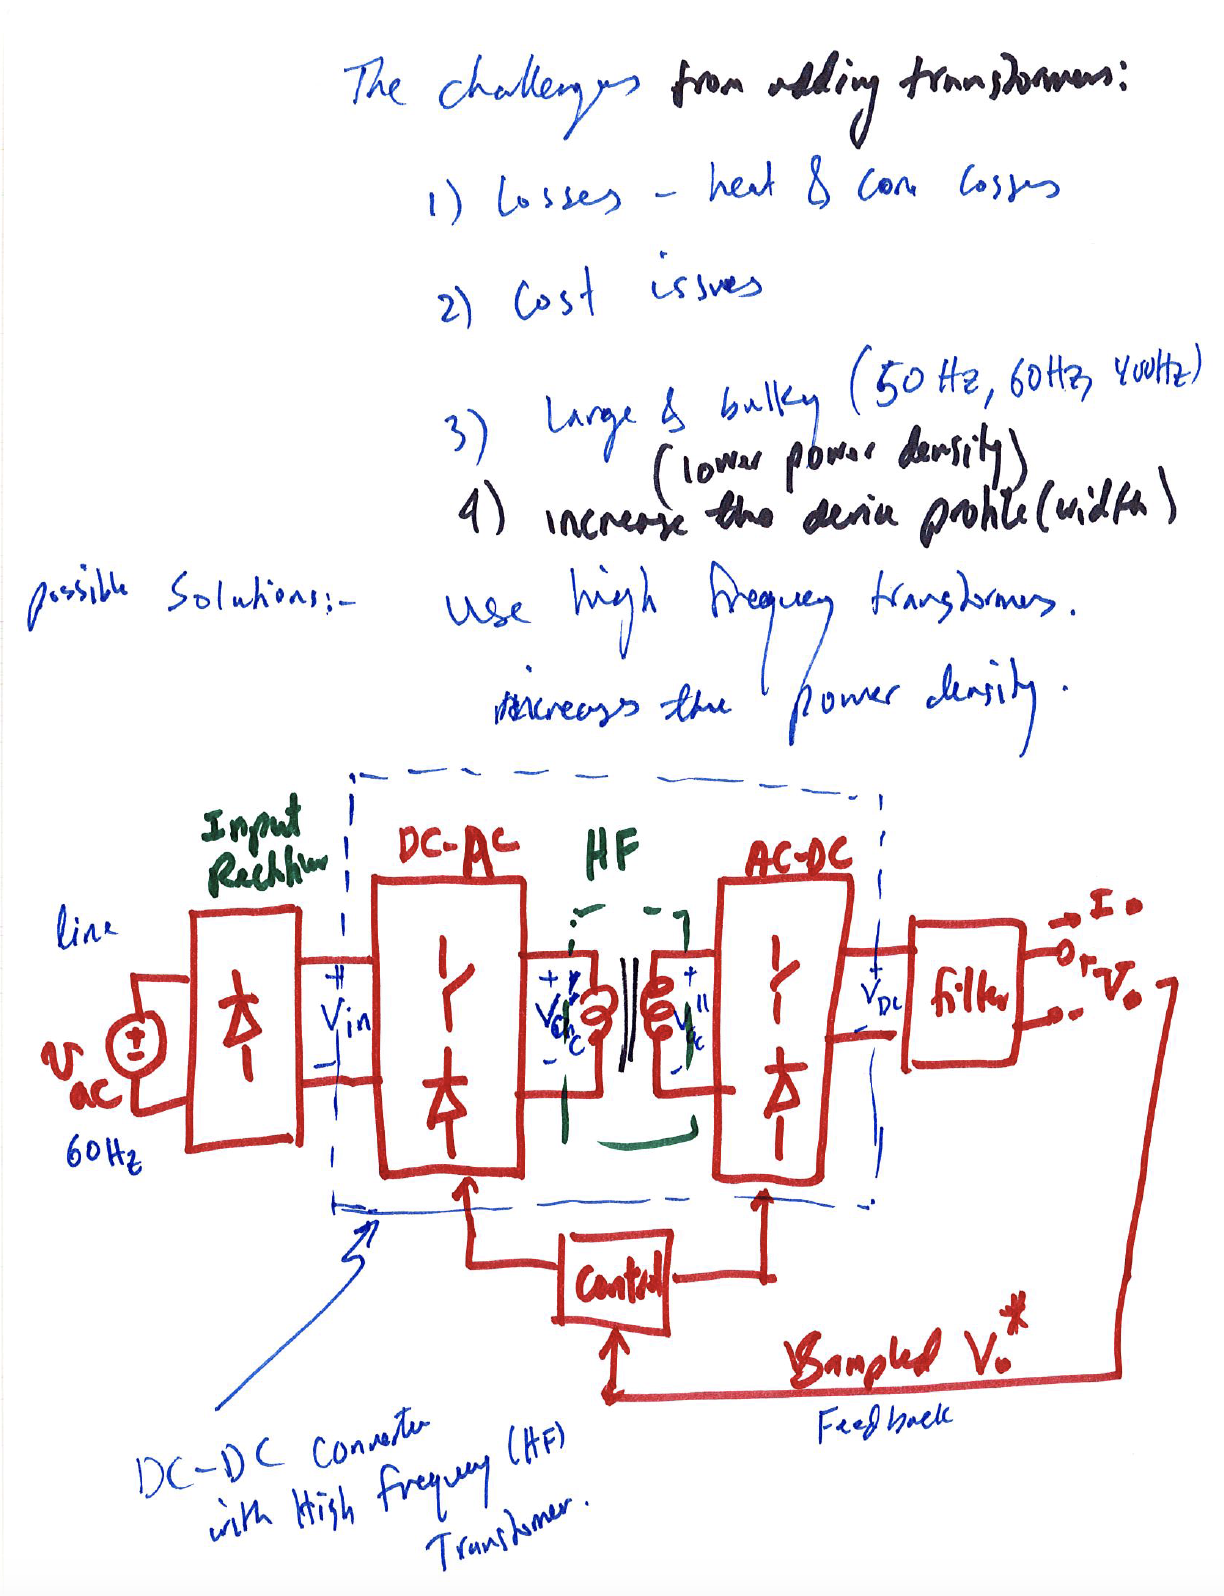 The challenges from adding transformers:
1) Losses - heat & core losses
2) Cost issues
3) Large & bulky (50 Hz, 60Hz, 400Hz)
(lower power density)
4) increase the device profile (width)
possible Solutions:- Use high frequency transformers.
increases the power density.
Input
Rectifier
DC-AC
HF
AC-DC
line
I o
+
Vin
-
+
V'ac
-
+
V''ac
-
+
VDC
-
filter
+
Vo
-
+
-
v ac
60Hz
Control
Sampled Vo*
Feedback
DC-DC Converter
with High frequency (HF)
Transformer.